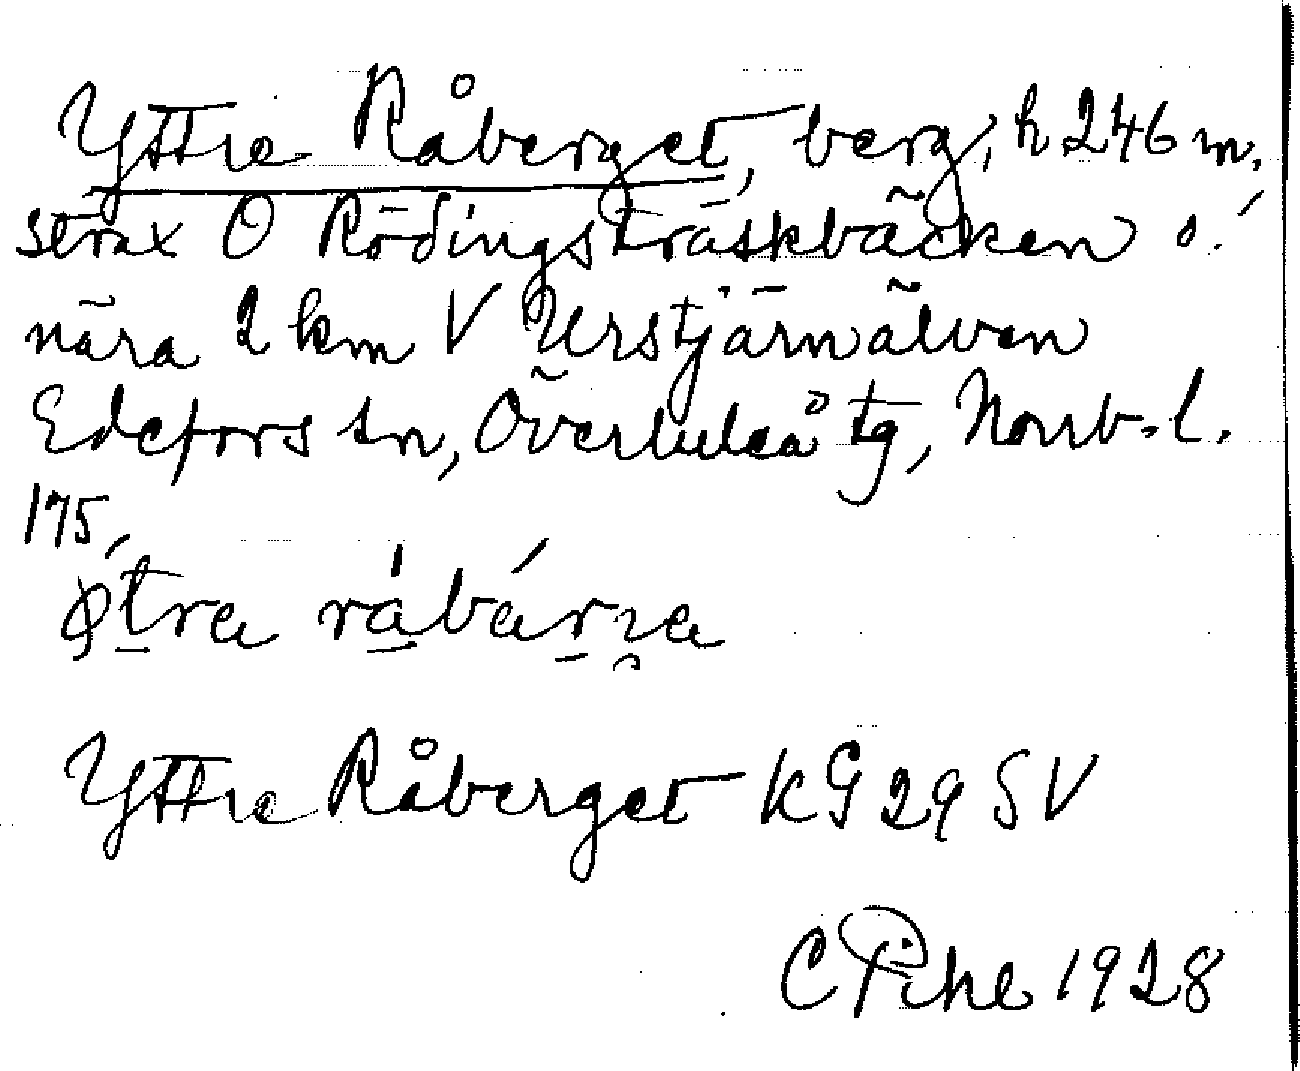 Yttre Råberget, berg, h 246 m.
strax O Rödingsträskbäcken o.
nära 2 km V Urstjärnälven
Edefors sn, Överluleå tg, Norrb. l.
175,
Yttre Råberget KG 29 SV
C Pihl 1928